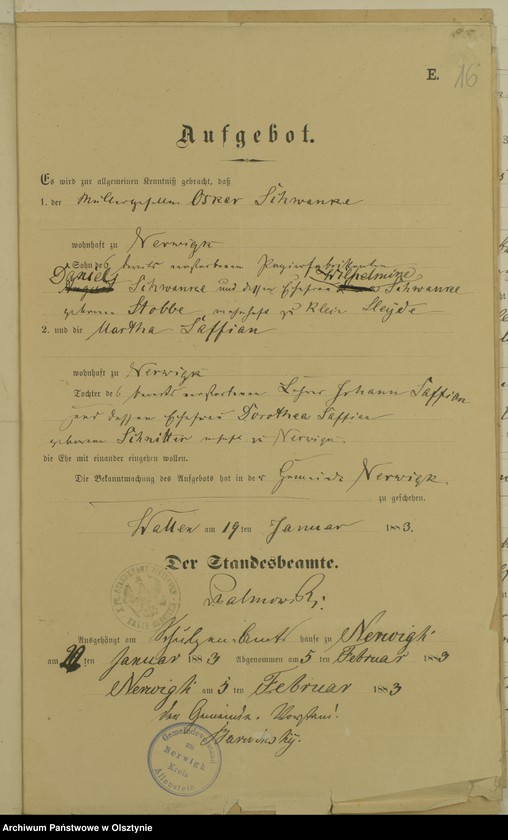 E. 16
Aufgebot.
Es wird zur allgemeinen Kenntniß gebracht, daß
1. der Müllergesellen Oskar Schwanke
wohnhaft zu Nerwigk
Sohn des bereits verstorbenen Papierfabrikanten
Daniel Wilhelmine
August Schwanke und dessen Ehefrau Schwanke
geborene Stobbe, wohnhaft zu Klein Kleyde
2. und die Martha Saffian
wohnhaft zu Nerwigk
Tochter des bereits verstorbenen Lehrer Johann Saffian
und dessen Ehefrau Dorothea Saffian
geborene Schnitter zu Nerwigk
die Ehe mit einander eingehen wollen.
Die Bekanntmachung des Aufgebots hat in der Gemeinde Nerwigk.
zu geschehen.
Watten am 19ten Januar 1883.
Der Standesbeamte.
Ausgehängt am Schulzen-Amts hause zu Nerwigk
am ten Januar 1883 Abgenommen am 5 ten Februar 1883
Nerwigk am 5 ten Februar 1883
der Gemeinde-Vorstand.
Barwinsky.
Gemeindevorstand
zu
Nerwigk
Kreis
Allenstein
Archiwum Państwowe w Olsztynie